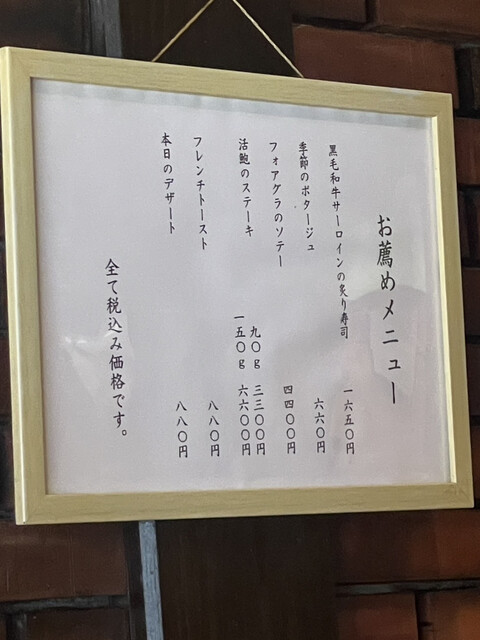 お薦めメニュー
黒毛和牛サーロインの炙り寿司 一六五〇円
季節のポタージュ 六六〇円
フォアグラのソテー 四四〇〇円
活鮑のステーキ 九〇g 三三〇〇円
一五〇g 六六〇〇円
フレンチトースト 八八〇円
本日のデザート 八八〇円
全て税込み価格です。